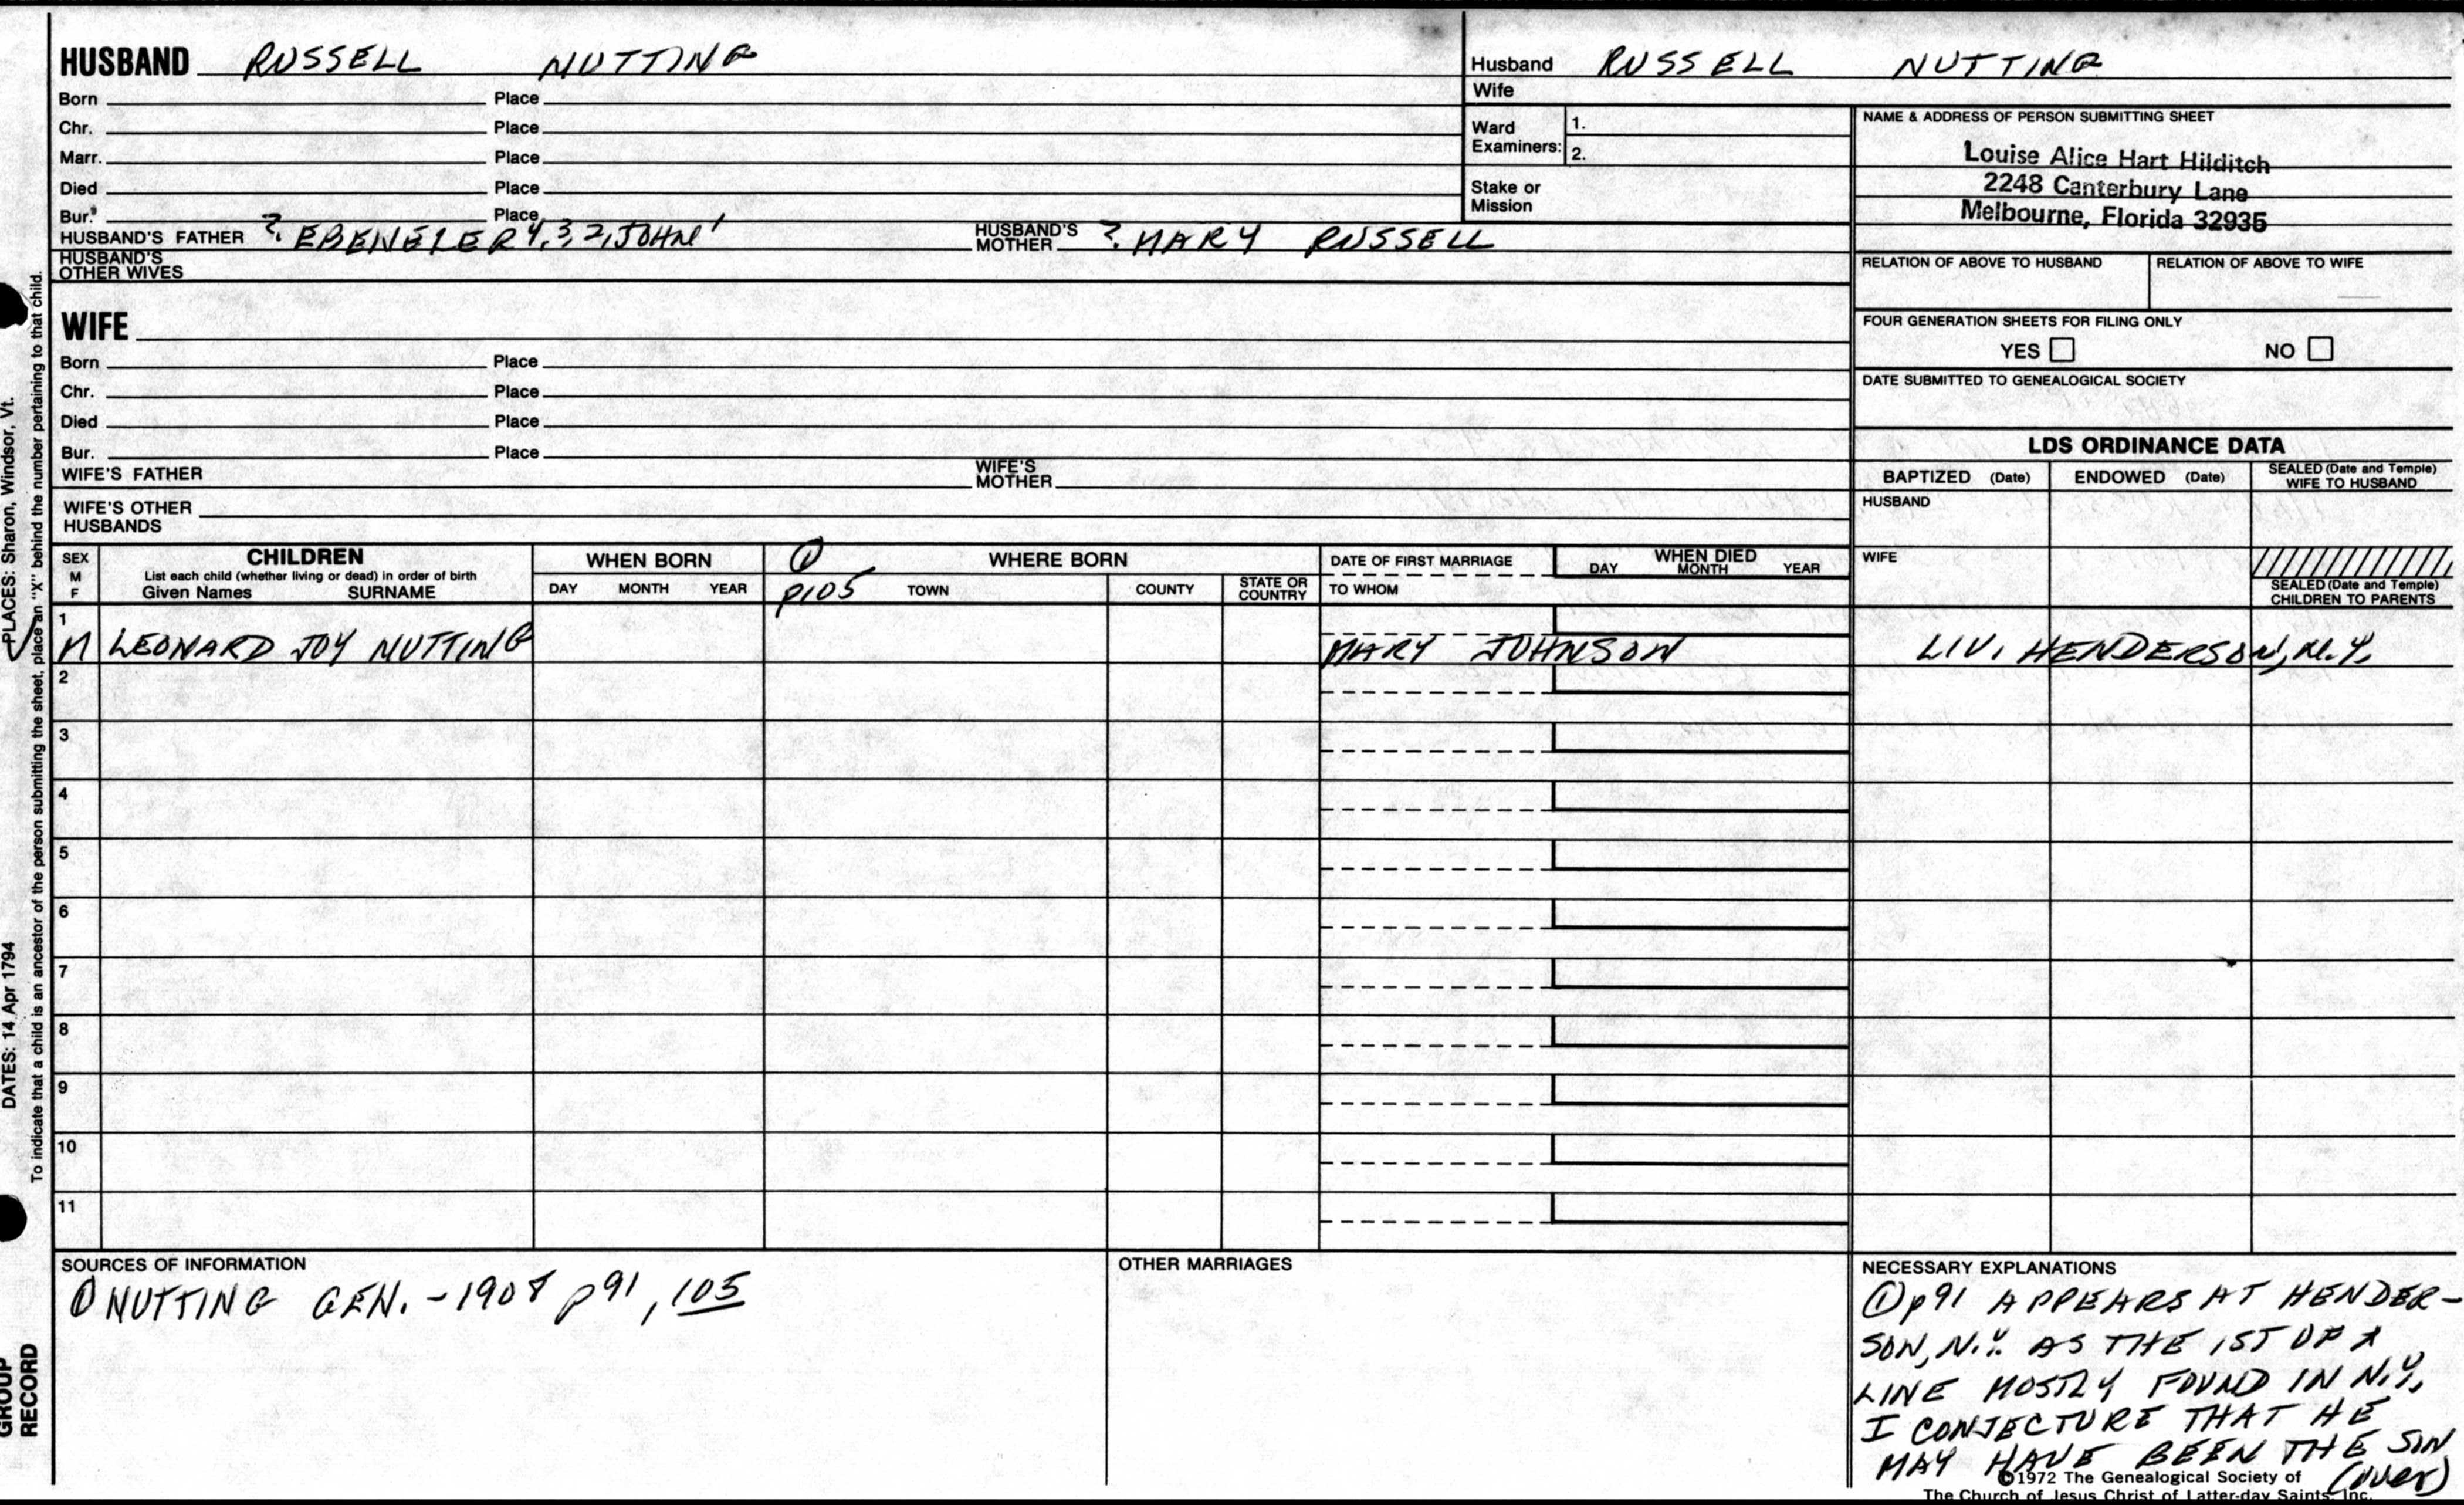 HUSBAND RUSSELL NUTTING
Born Place
Chr. Place
Marr. Place
Died Place
Bur. Place
HUSBAND'S FATHER ? EBENEZER 4,3,2, JOHN 1 HUSBAND'S MOTHER ? MARY RUSSELL
HUSBAND'S OTHER WIVES
WIFE
Born Place
Chr. Place
Died Place
Bur. Place
WIFE'S FATHER WIFE'S MOTHER
WIFE'S OTHER HUSBANDS
Husband RUSSELL NUTTING
Wife
Ward Examiners: 1.
2.
Stake or Mission
NAME & ADDRESS OF PERSON SUBMITTING SHEET
Louise Alice Hart Hilditch
2248 Canterbury Lane
Melbourne, Florida 32935
RELATION OF ABOVE TO HUSBAND RELATION OF ABOVE TO WIFE
FOUR GENERATION SHEETS FOR FILING ONLY
YES NO
DATE SUBMITTED TO GENEALOGICAL SOCIETY
LDS ORDINANCE DATA
BAPTIZED (Date) ENDOWED (Date) SEALED (Date and Temple) WIFE TO HUSBAND
HUSBAND
WIFE
SEALED (Date and Temple) CHILDREN TO PARENTS
SEX M F
CHILDREN
List each child (whether living or dead) in order of birth
Given Names SURNAME
WHEN BORN
DAY MONTH YEAR
① p105
WHERE BORN
TOWN COUNTY STATE OR COUNTRY
DATE OF FIRST MARRIAGE
TO WHOM
WHEN DIED
DAY MONTH YEAR
1
M LEONARD JOY NUTTING MARY JOHNSON LIV. HENDERSON, N.Y.
2
3
4
5
6
7
8
9
10
11
SOURCES OF INFORMATION
① NUTTING GEN. - 1908 p91, 105
OTHER MARRIAGES
NECESSARY EXPLANATIONS
① p91 APPEARS AT HENDER-
SON, N.Y. AS THE 1ST OF A
LINE MOSTLY FOUND IN N.Y.
I CONJECTURE THAT HE
MAY HAVE BEEN THE SON
(over)
©1972 The Genealogical Society of
The Church of Jesus Christ of Latter-day Saints, Inc.
PLACES: Sharon, Windsor, Vt.
DATES: 14 Apr 1794
To indicate that a child is an ancestor of the person submitting the sheet, place an "X" behind the number pertaining to that child.
GROUP
RECORD